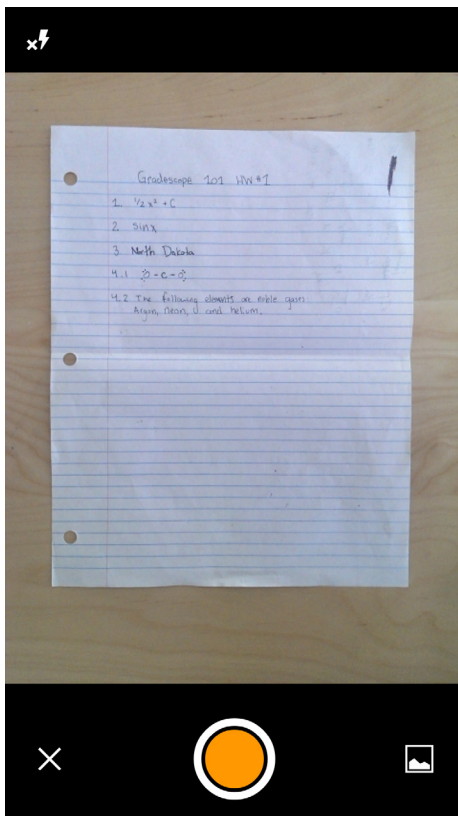 Gradescope 101 HW #1
1. 1/2 x² + C
2. sinx
3. North Dakota
4.1 :O - C - O:
4.2 The following elements are noble
Argon, neon, and helium.